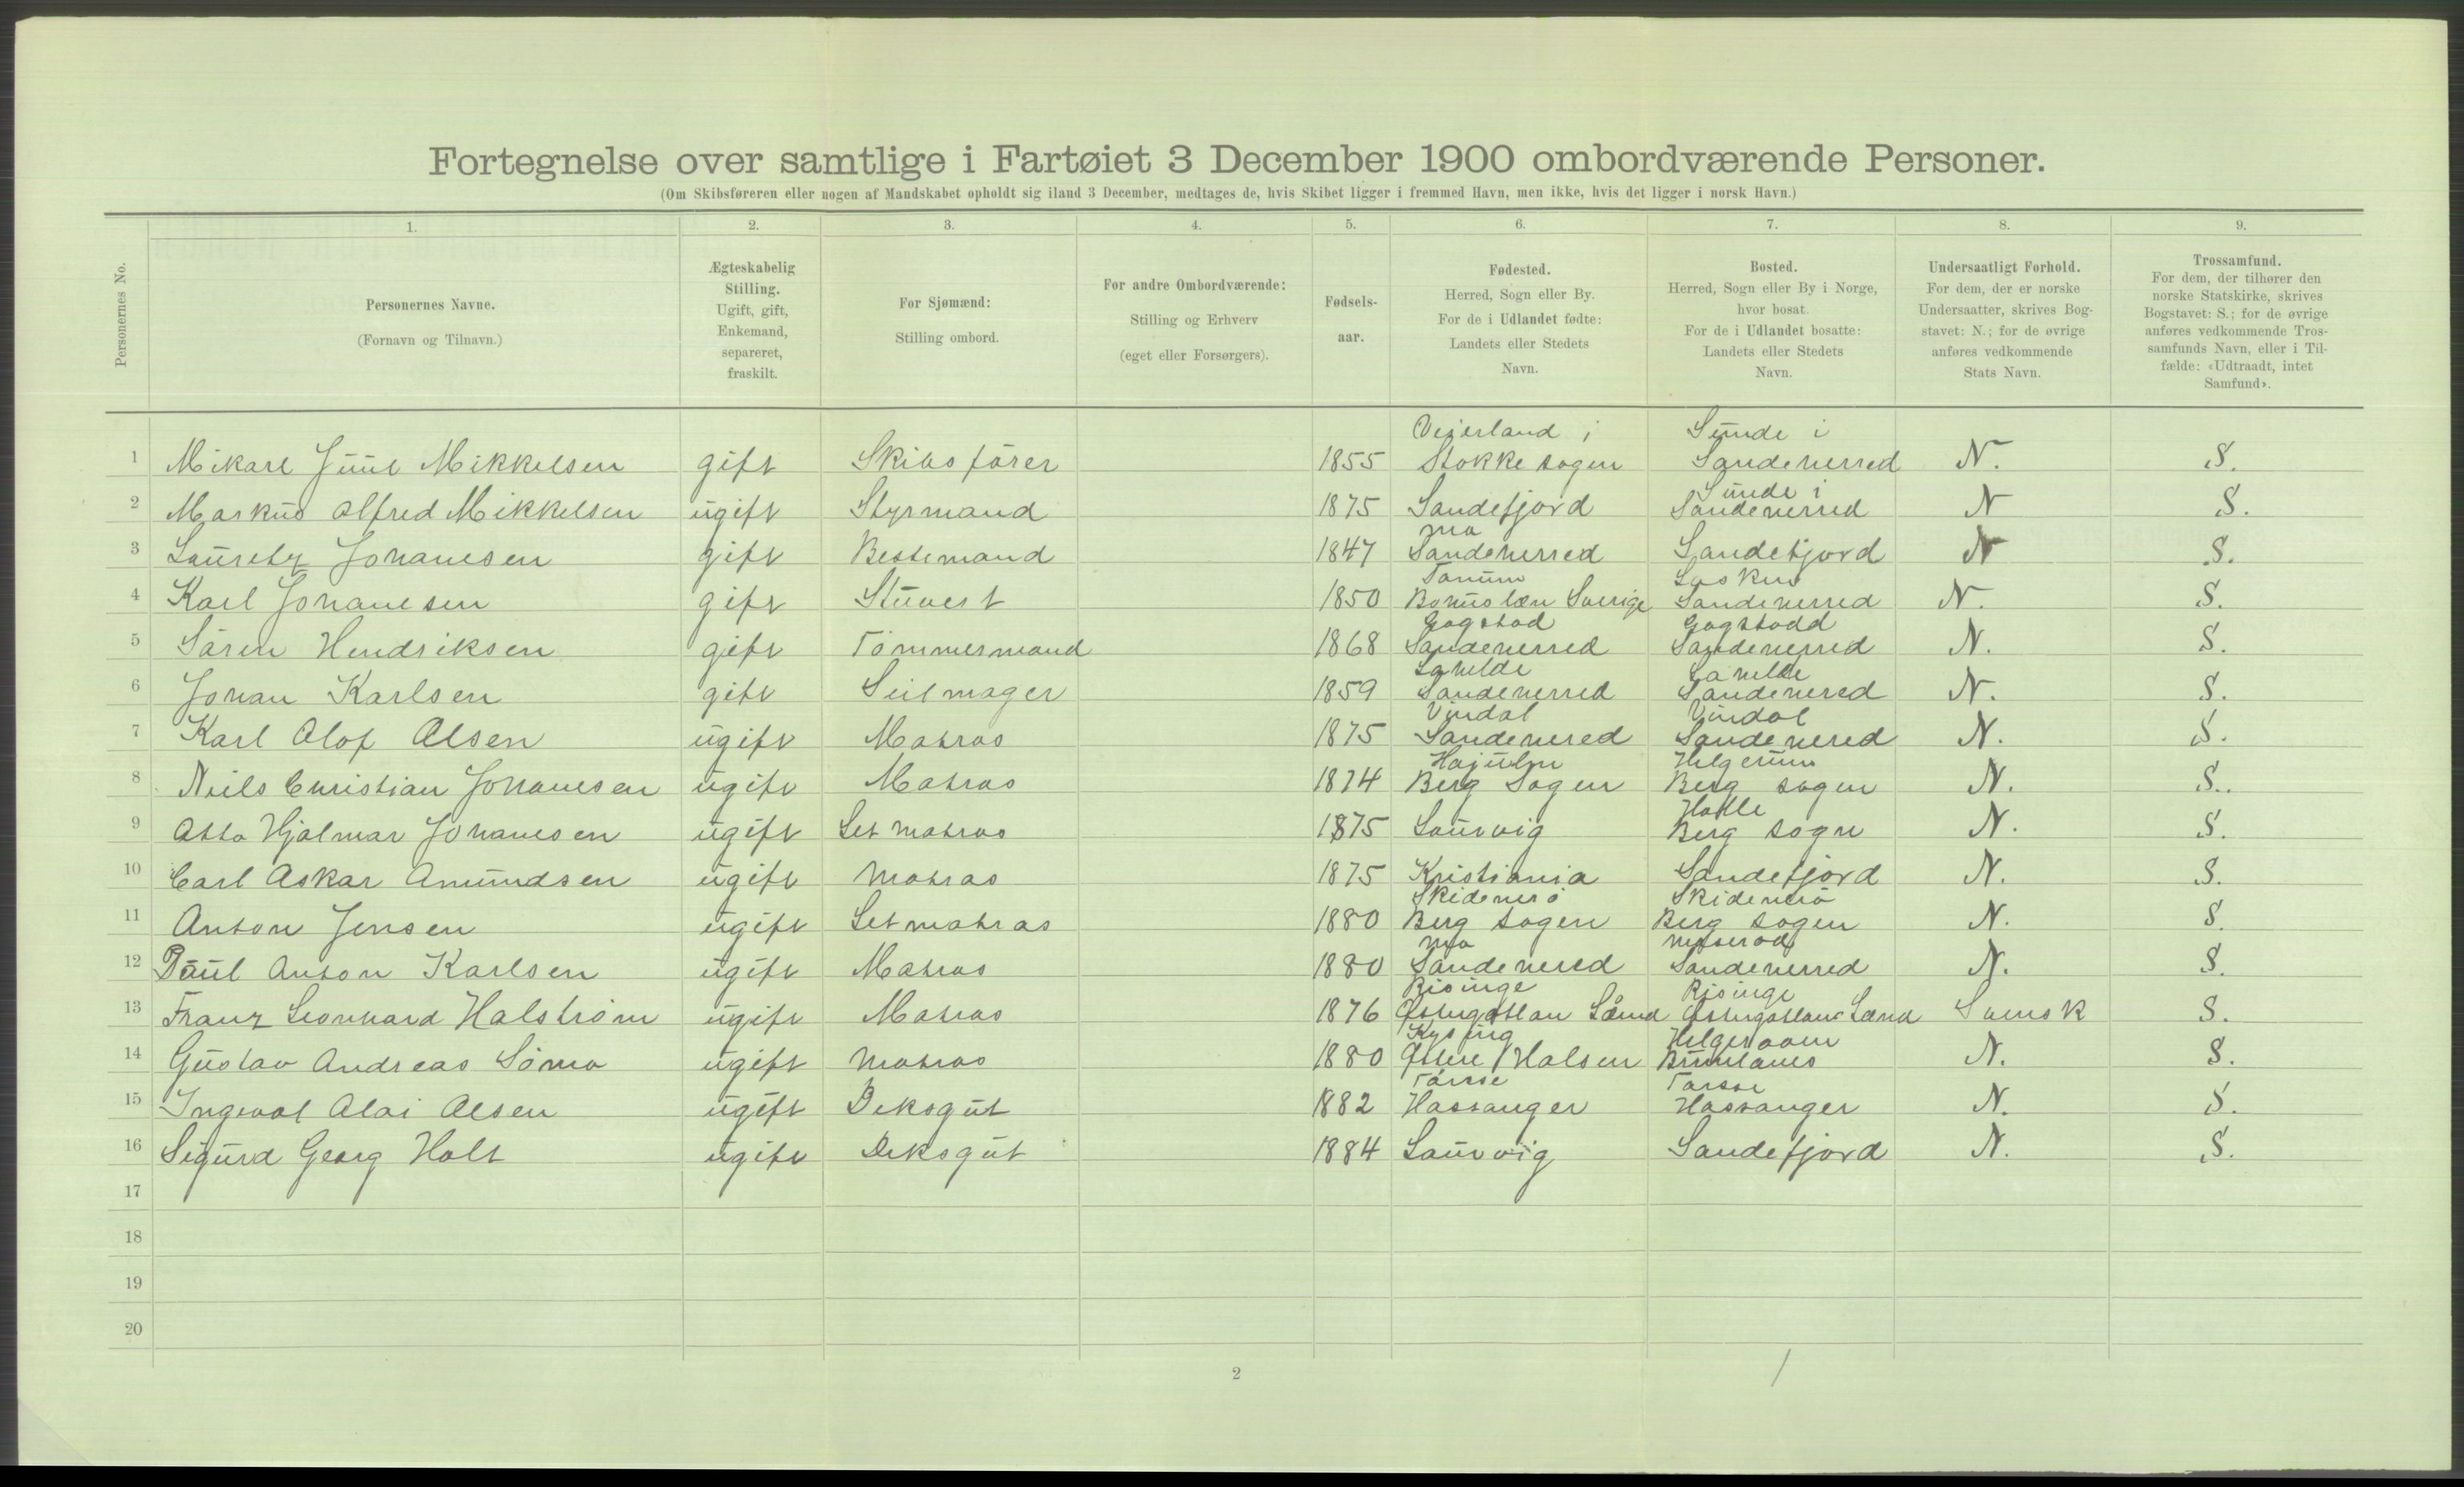 Fortegnelse over samtlige i Fartøiet 3 December 1900 ombordværende Personer.
(Om Skibsføreren eller nogen af Mandskabet opholdt sig iland 3 December, medtages de, hvis Skibet ligger i fremmed Havn, men ikke, hvis det ligger i norsk Havn.)
Personernes No.
1. 2. 3. 4. 5. 6. 7. 8. 9.
Personernes Navne.
(Fornavn og Tilnavn.)
Ægteskabelig
Stilling.
Ugift, gift,
Enkemand,
separeret,
fraskilt.
For Sjømænd:
Stilling ombord.
For andre Ombordværende:
Stilling og Erhverv
(eget eller Forsørgers).
Fødsels-
aar.
Fødested.
Herred, Sogn eller By.
For de i Udlandet fødte:
Landets eller Stedets
Navn.
Bosted.
Herred, Sogn eller By i Norge,
hvor bosat.
For de i Udlandet bosatte:
Landets eller Stedets
Navn.
Undersaatligt Forhold.
For dem, der er norske
Undersaatter, skrives Bog-
stavet: N.; for de øvrige
anføres vedkommende
Stats Navn.
Trossamfund.
For dem, der tilhører den
norske Statskirke, skrives
Bogstavet: S.; for de øvrige
anføres vedkommende Tros-
samfunds Navn, eller i Til-
fælde: «Udtraadt, intet
Samfund».
Vejerland i Sunde i
1 Mikael Juul Mikkelsen gift Skibsfører 1855 Stokke sogen Sandeherred N. S.
Sunde i
2 Markus Alfred Mikkelsen ugift Styrmand 1875 Sandefjord Sandeherred N S.
Mo
3 Lauretz Johanesen gift Bestemand 1847 Sandeherred Sandefjord N S.
Tanum
4 Karl Johanesen gift Stuvert 1850 Bohuslæn Sverige Sandeherred N. S.
Gogstad Gogstadd
5 Søren Hendriksen gift Tømmermand 1868 Sandeherred Sandeherred N. S.
Lahelde Lahelle
6 Johan Karlsen gift Seilmager 1859 Sandeherred Sandehered N. S.
Vindal Vindal
7 Karl Olof Olsen ugift Matros 1875 Sandehered Sandehered N. S.
Helgerum
8 Niels Christian Johanesen ugift Matros 1874 Berg Sogen Berg sogen N. S.
Halle
9 Otto Hjalmar Johanesen ugift Letmatros 1875 Laurvig Berg sogn N. S.
10 Carl Oskar Amundsen ugift Matros 1875 Kristiania Sandefjord N. S.
Skidenesø Skidenesø
11 Anton Jensen ugift Letmatros 1880 Berg sogen Berg sogen N. S.
Mo
12 Paul Anton Karlsen ugift Matros 1880 Sandehered Sandeherred N. S.
Risinge Risinge
13 Franz Leonhard Halstrøm ugift Matros 1876 Østergøtlan Længd Østergøtlans Læna Svensk S.
Helgeroaen
14 Gustav Andreas Sømo ugift Matros 1880 Østre Halsen Brunlanes N. S.
Tørsse Tørsse
15 Ingevol Olai Olsen ugift Deksgut 1882 Hassanger Hassanger N. S.
16 Sigurd Georg Holt ugift Deksgut 1884 Laurvig Sandefjord N. S.
17
18
19
20
2